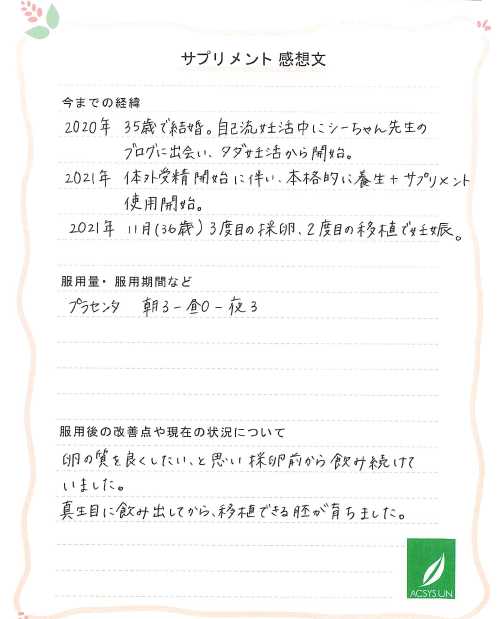 サプリメント 感想文
今までの経緯
2020年 35歳で結婚。自己流妊活中にシーちゃん先生の
ブログに出会い、タダ妊活から開始。
2021年 体外受精開始に伴い、本格的に養生+サプリメント
使用開始。
2021年 11月(36歳) 3度目の採卵、2度目の移植で妊娠。
服用量・服用期間など
プラセンタ 朝3-昼0-夜3
服用後の改善点や現在の状況について
卵の質を良くしたい、と思い採卵前から飲み続けて
いました。
真面目に飲み出してから、移植できる胚が育ちました。
ACSYS UN